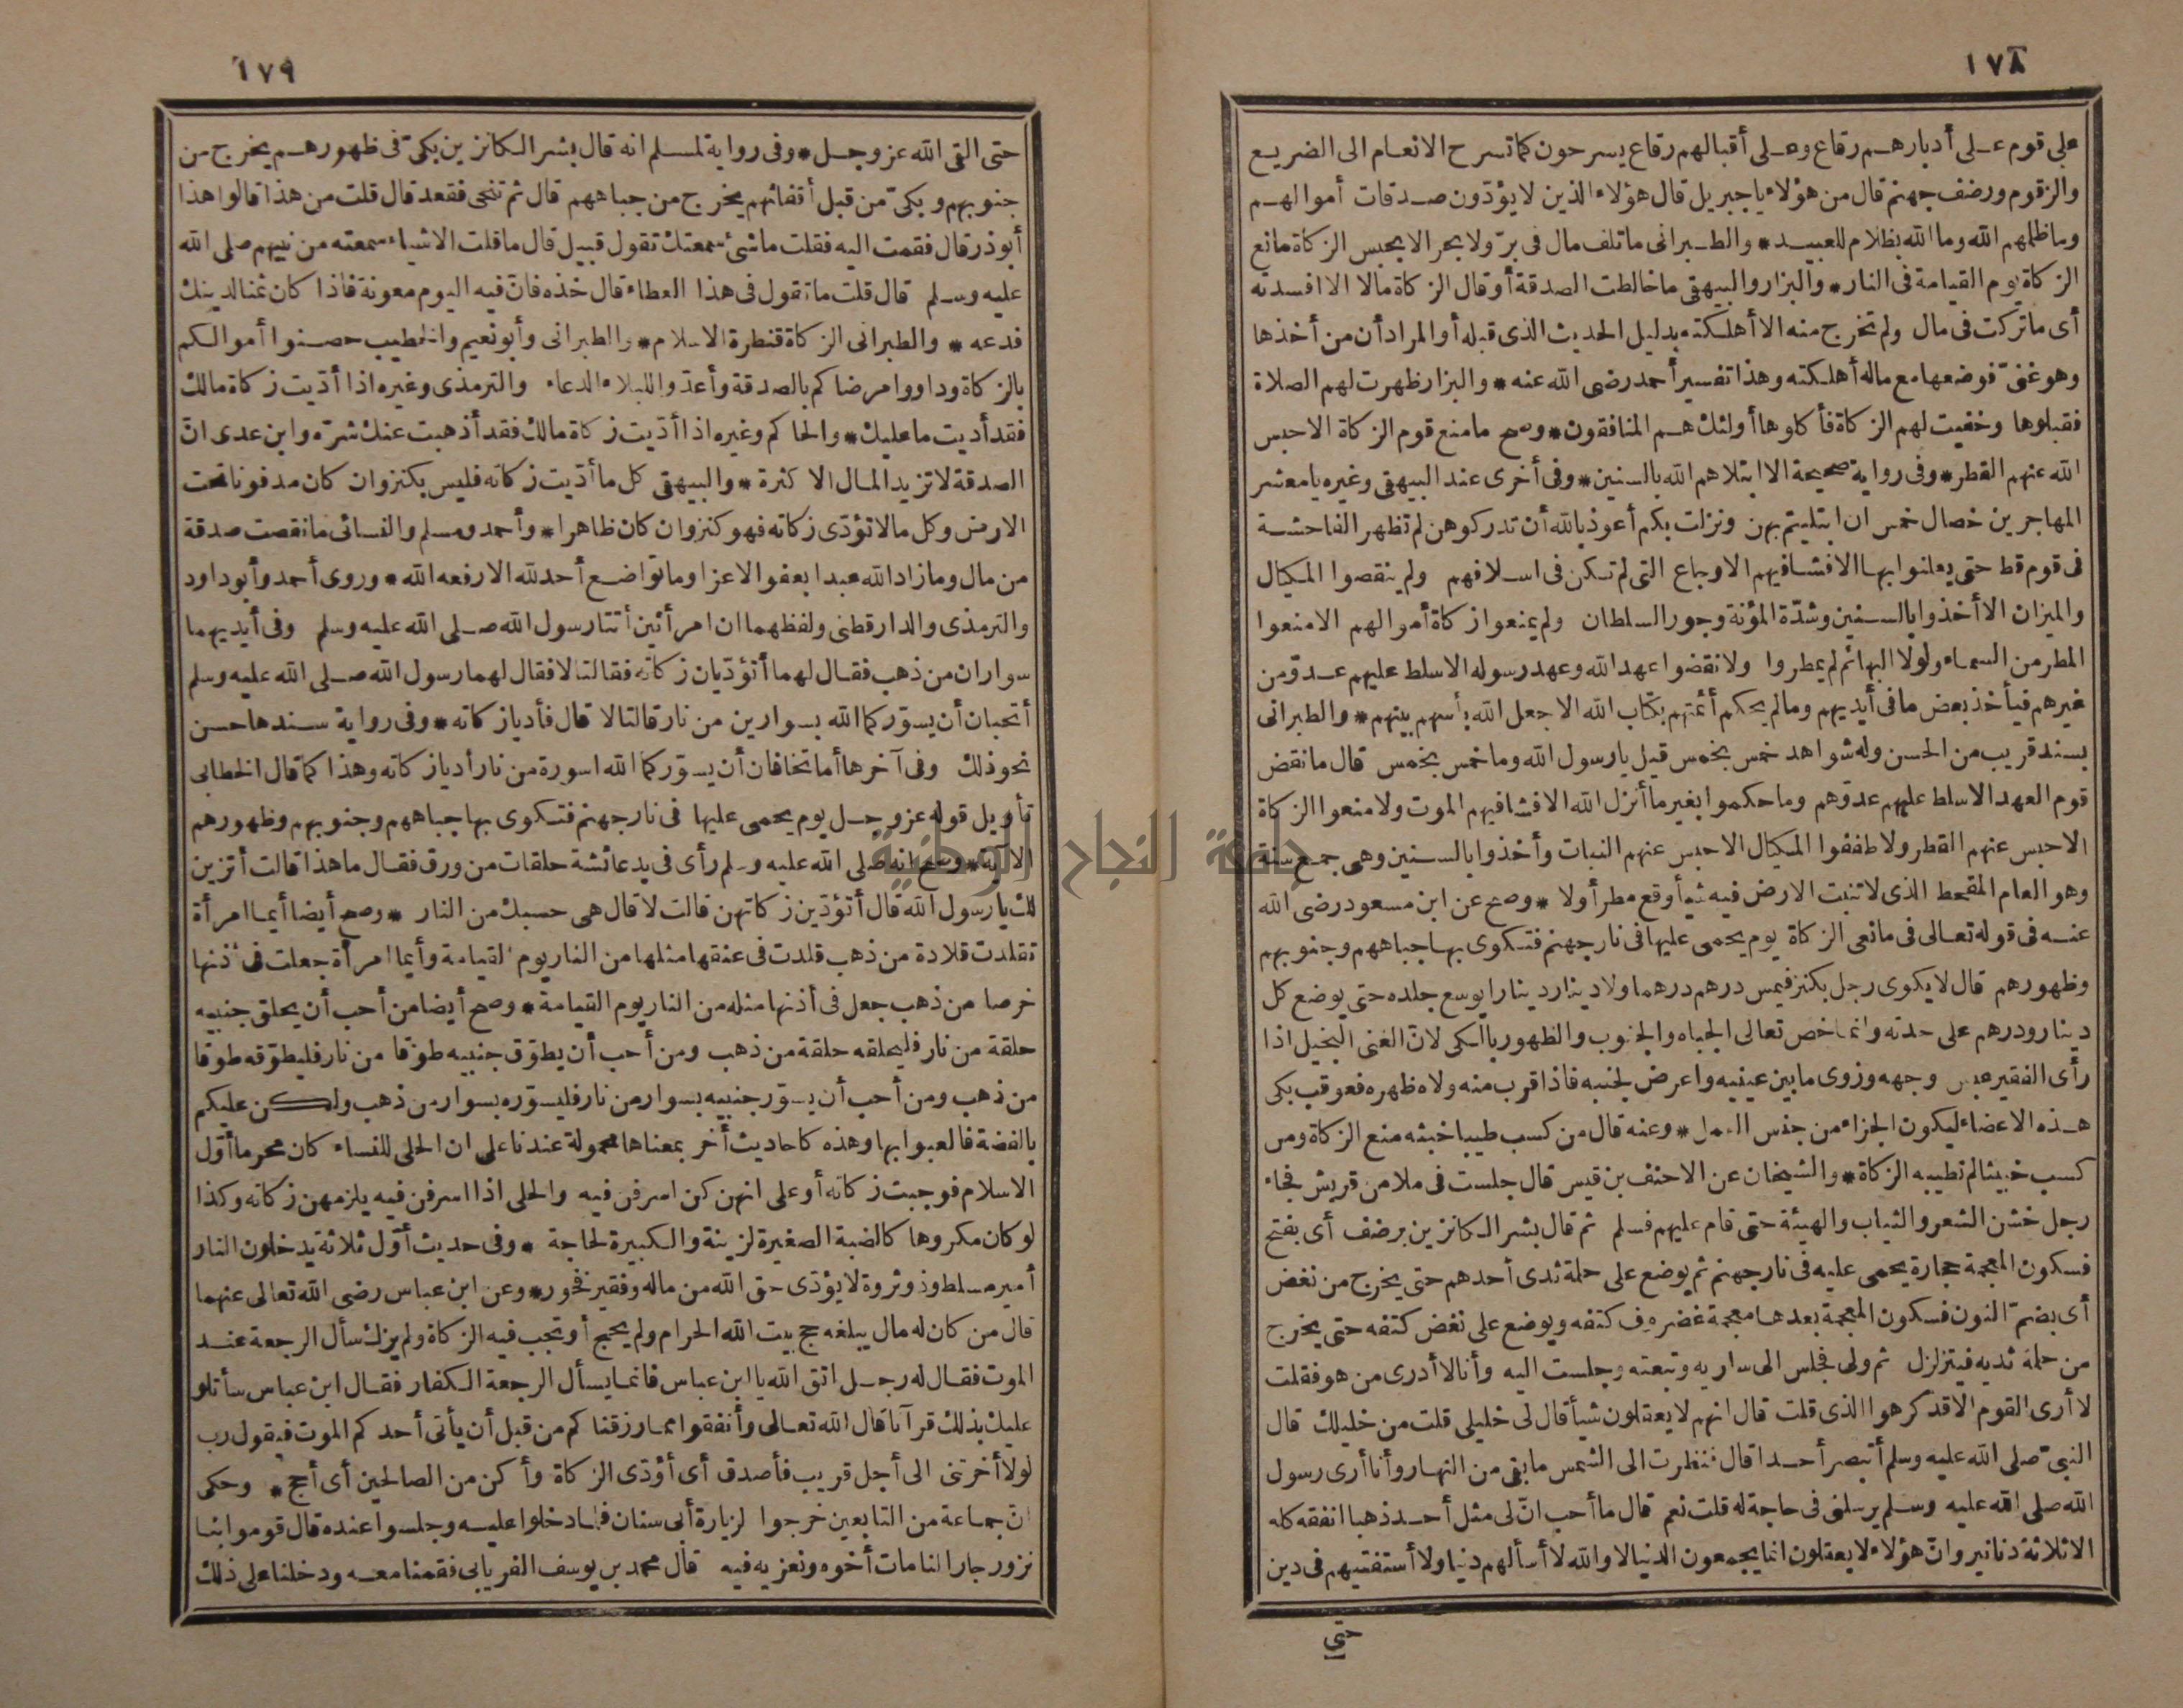 ١٧٨
على قوم على أدبارهم رقاع وعلى أقبالهم رقاع يسرحون كما تسرح الانعام الى الضريع
والزقوم ورضف جهنم قال من هؤلاء يا جبريل قال هؤلاء الذين لا يؤدّون صدقات أموالهم
وما ظلمهم الله وما الله بظلام للعبيد * والطبرانى ما تلف مال فى برّ ولا بحر الا بحبس الزكاة مانع
الزكاة يوم القيامة فى النار * والبزار والبيهقى ما خالطت الصدقة أو قال الزكاة مالا الا افسدته
أى ما تركت فى مال ولم تخرج منه الا أهلكته بدليل الحديث الذى قبله أو المراد أن من أخذها
وهو غنىّ فوضعها مع ماله أهلكته وهذا تفسير أحمد رضى الله عنه * والبزار ظهرت لهم الصلاة
فقبلوها وخفيت لهم الزكاة فأكلوها أولئك هم المنافقون * وصح ما منع قوم الزكاة الا حبس
الله عنهم القطر * وفى رواية صحيحة الا ابتلاهم الله بالسنين * وفى أخرى عند البيهقى وغيره يا معشر
المهاجرين خصال خمس ان ابتليتم بهن ونزلت بكم أعوذ بالله أن تدركوهن لم تظهر الفاحشة
فى قوم قط حتى يعلنوا بها الا فشا فيهم الاوجاع التى لم تكن فى اسلافهم ولم ينقصوا المكيال
والميزان الا أخذوا بالسنين وشدّة المؤنة وجور السلطان ولم يمنعوا زكاة أموالهم الا منعوا
المطر من السماء ولولا البهائم لم يمطروا ولا نقضوا عهد الله وعهد رسوله الا سلط عليهم عدوّ من
غيرهم فيأخذ بعض ما فى أيديهم وما لم يحكم أئمتهم بكتاب الله الا جعل الله بأسهم بينهم * والطبرانى
بسند قريب من الحسن وله شواهد خمس بخمس قيل يا رسول الله وما خمس بخمس قال ما نقض
قوم العهد الا سلط عليهم عدوّهم وما حكموا بغير ما أنزل الله الا فشا فيهم الموت ولا منعوا الزكاة
الا حبس عنهم القطر ولا طففوا المكيال الا حبس عنهم النبات وأخذوا بالسنين وهى جمع سنة
وهو العام المقحط الذى لا تنبت الارض فيه شيأ وقع مطر أو لا * وصح عن ابن مسعود رضى الله
عنه فى قوله تعالى فى مانعى الزكاة يوم يحمى عليها فى نار جهنم فتكوى بها جباههم وجنوبهم
وظهورهم قال لا يكوى رجل بكنز فيمس درهم درهما ولا دينار دينارا يوسع جلده حتى يوضع كل
دينار ودرهم على حدته وانما خص تعالى الجباه والجنوب والظهور بالكى لانّ الغنى البخيل اذا
رأى الفقير عبس وجهه وزوى ما بين عينيه واعرض بجنبه فاذا قرب منه ولاه ظهره فعوقب بكى
هذه الاعضاء ليكون الجزاء من جنس العمل * وعنه قال من كسب طيبا خبثه منع الزكاة ومن
كسب خبيثا لم تطيبه الزكاة * والشيخان عن الاحنف بن قيس قال جلست فى ملا من قريش فجاء
رجل خشن الشعر والثياب والهيئة حتى قام عليهم فسلم ثم قال بشر الكانزين برضف أى بفتح
فسكون المعجمة حجارة يحمى عليه فى نار جهنم ثم يوضع على حلمة ثدى أحدهم حتى يخرج من نغض
أى بضمّ النون فسكون المعجمة بعدها معجمة غضروف كتفه ويوضع على نغض كتفه حتى يخرج
من حلمة ثديه فيتزلزل ثم ولى فجلس الى سارية وتبعته وجلست اليه وأنا لا أدرى من هو فقلت
لا أرى القوم الا قد كرهوا الذى قلت قال انهم لا يعقلون شيأ قال لى خليلى قلت من خليلك قال
النبىّ صلى الله عليه وسلم أتبصر أحدا قال فنظرت الى الشمس ما بقى من النهار وأنا أرى رسول
الله صلى الله عليه وسلم يرسلنى فى حاجة له قلت نعم قال ما أحب انّ لى مثل أحد ذهبا انفقه كله
الا ثلاثة دنانير وانّ هؤلاء لا يعقلون انما يجمعون الدنيا لا والله لا أسألهم دنيا ولا أستفتيهم فى دين
حتى
١٧٩
حتى القى الله عز وجل * وفى رواية لمسلم انه قال بشر الكانزين بكىّ فى ظهورهم يخرج من
جنوبهم وبكىّ من قبل أقفائهم يخرج من جباههم قال ثم تنحى فقعد قال قلت من هذا قالوا هذا
أبو ذر قال فقمت اليه فقلت ما شئ سمعتك تقول قبيل قال ما قلت الا شياء سمعته من نبيهم صلى الله
عليه وسلم قال قلت ما تقول فى هذا العطاء قال خذه فانّ فيه اليوم معونة فاذا كان ثمنا لدينك
فدعه * والطبرانى الزكاة قنطرة الاسلام * والطبرانى وأبو نعيم والخطيب حصنوا أموالكم
بالزكاة وداووا مرضاكم بالصدقة وأعدّوا للبلاء الدعاء والترمذى وغيره اذا أدّيت زكاة مالك
فقد أديت ما عليك * والحاكم وغيره اذا أدّيت زكاة مالك فقد أذهبت عنك شرّه وابن عدى انّ
الصدقة لا تزيد المال الا كثرة * والبيهقى كل ما أدّيت زكاته فليس بكنز وان كان مدفونا تحت
الارض وكل ما لا تؤدّى زكاته فهو كنز وان كان ظاهرا * وأحمد ومسلم والنسائى ما نقصت صدقة
من مال وما زاد الله عبدا بعفو الا عزا وما تواضع أحد لله الا رفعه الله * وروى أحمد وأبو داود
والترمذى والدارقطنى ولفظهما ان امرأتين أتتا رسول الله صلى الله عليه وسلم وفى أيديهما
سواران من ذهب فقال لهما أتؤدّيان زكاته فقالتا لا فقال لهما رسول الله صلى الله عليه وسلم
أتحبان أن يسوّركما الله بسوارين من نار قالتا لا قال فأديا زكاته * وفى رواية سندها حسن
نحو ذلك وفى آخرها أما تخافان أن يسوّركما الله اسورة من نار أديا زكاته وهذا كما قال الخطابى
تأويل قوله عز وجل يوم يحمى عليها فى نار جهنم فتكوى بها جباههم وجنوبهم وظهورهم
الآية * وصح انه صلى الله عليه وسلم رأى فى يد عائشة حلقات من ورق فقال ما هذا قالت أتزين
لك يا رسول الله قال أتؤدّين زكاتهن قالت لا قال هى حسبك من النار * وصح أيضا أيما امرأة
تقلدت قلادة من ذهب قلدت فى عنقها مثلها من النار يوم القيامة وأيما امرأة جعلت فى أذنها
خرصا من ذهب جعل فى أذنها مثله من النار يوم القيامة * وصح أيضا من أحب أن يحلق جنبيه
حلقة من نار فليحلقه حلقة من ذهب ومن أحب أن يطوّق جنبيه طوقا من نار فليطوّقه طوقا
من ذهب ومن أحب أن يسوّر جنبيه بسوار من نار فليسوّره بسوار من ذهب ولكن عليكم
بالفضة فالعبوا بها وهذه كأحاديث أخر بمعناها محمولة عندنا على ان الحلى للنساء كان محرما أوّل
الاسلام فوجبت زكاته أو على انهن كن اسرفن فيه والحلى اذا اسرفن فيه يلزمهن زكاته وكذا
لو كان مكروها كالضبة الصغيرة لزينة والكبيرة لحاجة * وفى حديث أوّل ثلاثة يدخلون النار
أمير مسلط وذو ثروة لا يؤدّى حق الله من ماله وفقير فخور * وعن ابن عباس رضى الله تعالى عنهما
قال من كان له مال يبلغه حج بيت الله الحرام ولم يحج أو تجب فيه الزكاة ولم يزك سأل الرجعة عند
الموت فقال له رجل اتق الله يا ابن عباس فانما يسأل الرجعة الكفار فقال ابن عباس سأتلو
عليك بذلك قرآنا قال الله تعالى وأنفقوا مما رزقناكم من قبل أن يأتى أحدكم الموت فيقول رب
لولا أخرتنى الى أجل قريب فأصدق أى أؤدّى الزكاة وأكن من الصالحين أى أحج * وحكى
انّ جماعة من التابعين خرجوا لزيارة أبى سنان فلما دخلوا عليه وجلسوا عنده قال قوموا بنا
نزور جارا لنا مات أخوه ونعزيه فيه قال محمد بن يوسف الفريابى فقمنا معه ودخلنا على ذلك
جامعة النجاح الوطنية